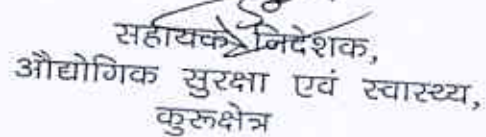 सहायक निदेशक,
औद्योगिक सुरक्षा एवं स्वास्थ्य,
कुरूक्षेत्र